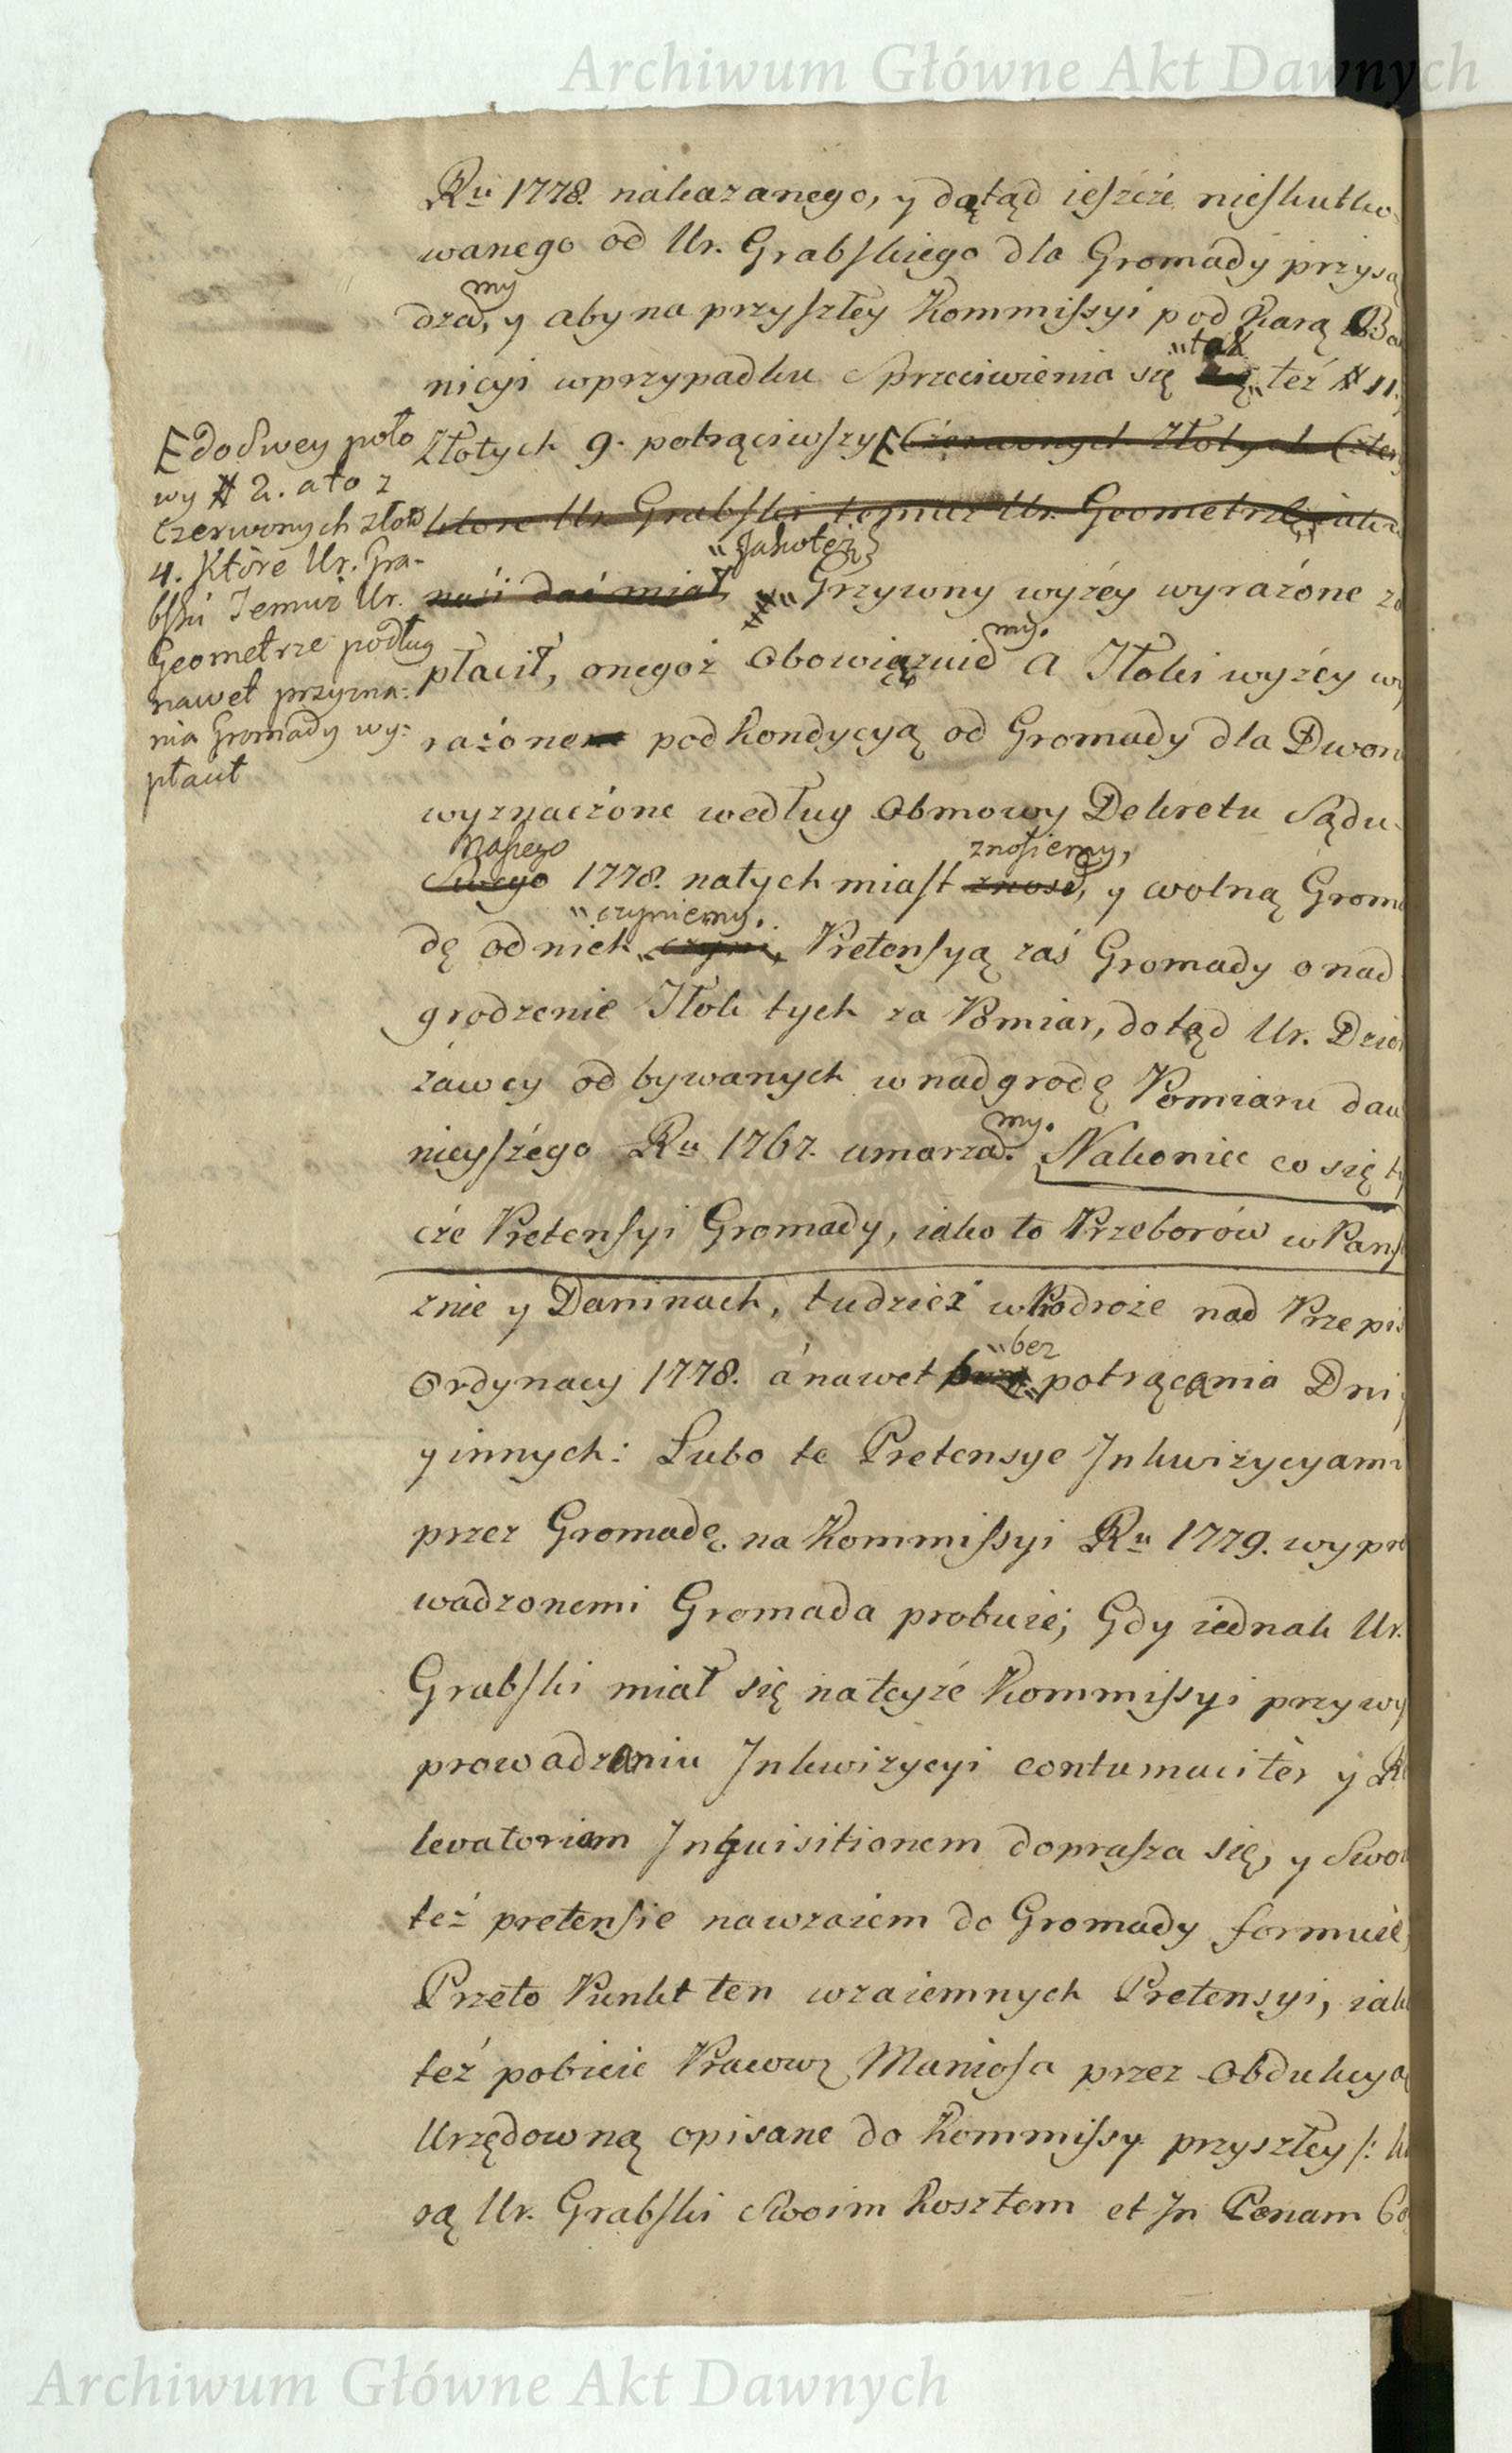 Archiwum Główne Akt Dawnych
Ru 1778. nakazanego, y dotąd ieszcze nieskutko-
wanego od Ur. Grabskiego dla Gromady przysą
my
dza, y aby na przyszłey Kommissyi pod Karą Ba
"tak
nicyi wprzypadku Sprzeciwienia się też # 11.
Złotych 9. potrąciwszy [ Czerwonych Złotych Cztery
ktore Ur. Grabski temuż Ur. Geometrze iako
"Jakoteż
naśi dać miał, "Grzywny wyżey wyrażone za
my.
płacił, onegoż Obowiązuie A Tłoki wyżey wy
rażone pod Kondycyą od Gromady dla Dworu
wyznaczone według Obmowy Dekretu Sądu
Naszego znosiemy,
Swego 1778. natychmiast znosi, y wolną Groma
"czyniemy.
dę od nich czyni, Pretensyą zaś Gromady o nad
grodzenie Tłok tych za Pomiar, dotąd Ur. Dzier
żawcy odbywanych w nadgrodę Pomiaru daw
my.
nieyszego Ru 1767. umarza. Nakoniec co się ty
cże Pretensyi Gromady, iako to Przeborów w Pańs
znie y Daninach, tudzież w Podroże nad Przepis
"bez
Ordynacy 1778. á nawet potrącania Dni
y innych: Lubo te Pretensye Inkwizycyami
przez Gromadę na Kommissyi Ru 1779. wypro
wadzonemi Gromada probuie; Gdy iednak Ur.
Grabski miał się na teyże Kommissyi przy wy
prowadzeniu Inkwizycyi contumaciter y Re
levatoriam Inquisitionem doprasza się, y Swoie
też pretensie nawzaiem do Gromady formuie,
Przeto Punkt ten wzaiemnych Pretensyi, iako
też pobicie Pracowi Maniosa przez Obdukcyą
Urzędowną opisane do Kommissy przyszłey /: któ
rą Ur. Grabski Swoim Kosztem et In Penam Co
[ do Swey poło
wy # 2. a to z
czerwonych złot
4. Które Ur. Gra-
bski Temuż Ur.
Geometrze podług
nawet przyzna:
nia Gromady wy:
płacił
Archiwum Główne Akt Dawnych